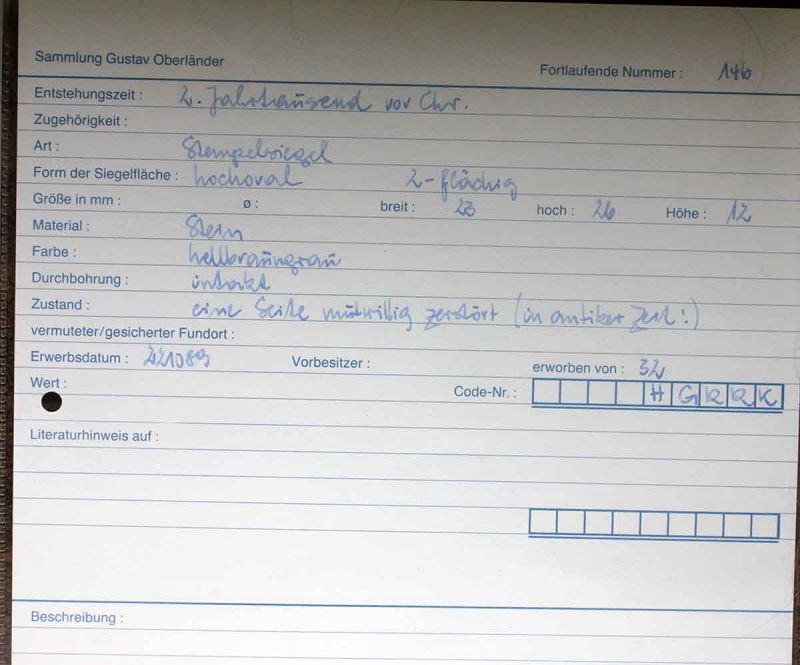 Sammlung Gustav Oberländer
Fortlaufende Nummer : 146
Entstehungszeit : 2. Jahrtausend vor Chr.
Zugehörigkeit :
Art : Stempelsiegel
Form der Siegelfläche : hochoval 2-flächig
Größe in mm : ø : breit : 23 hoch : 26 Höhe : 12
Material : Stein
Farbe : hellbraungrau
Durchbohrung : intakt
Zustand : eine Seite mutwillig zerstört (in antiker Zeit!)
vermuteter/gesicherter Fundort :
Erwerbsdatum : 221089 Vorbesitzer : erworben von : 32
Wert : Code-Nr. : H G R R K
Literaturhinweis auf :
Beschreibung :